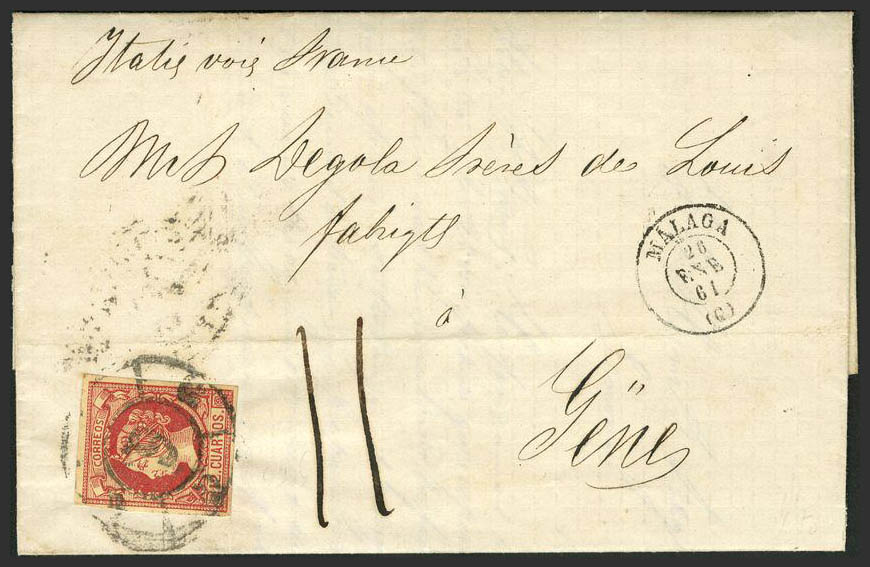 Italie voie France
Mrs Degola Frères de Louis
fabrigts
à
MALAGA
26
ENE
61
(6)
11
Gêne
CORREOS
CUARTOS.